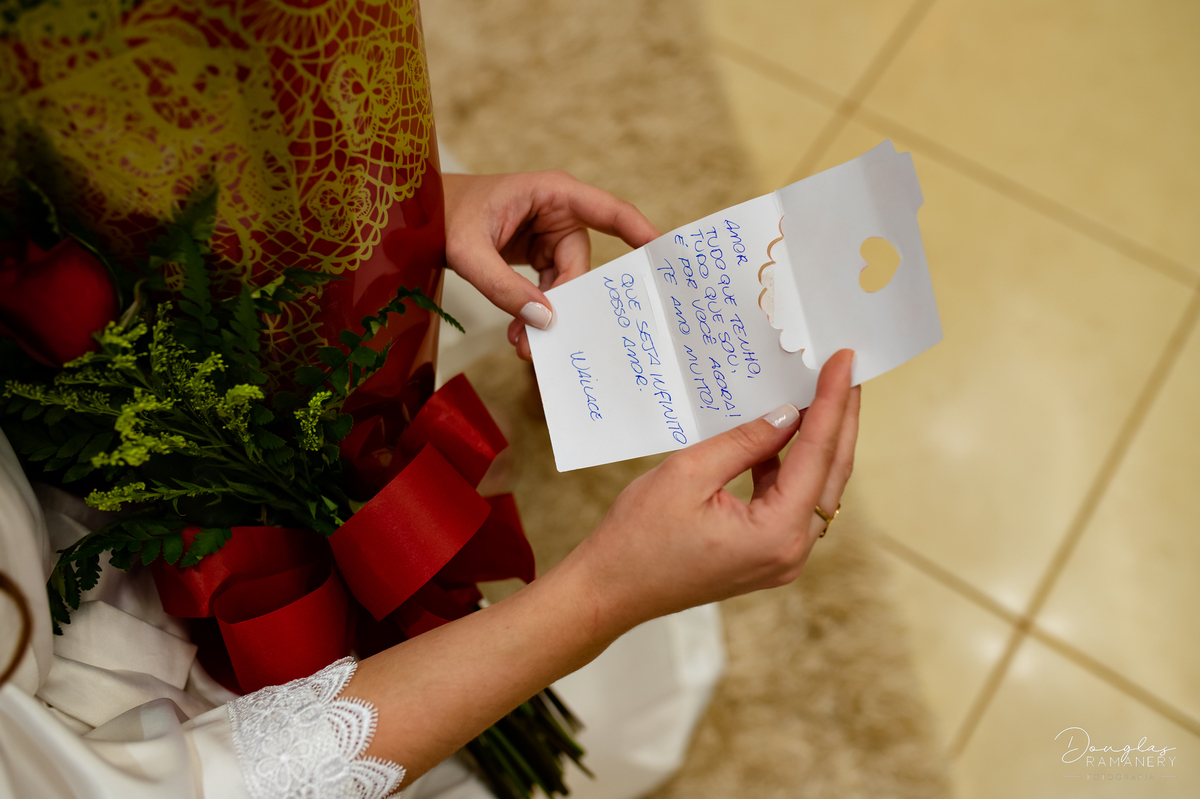 AMOR
TUDO QUE TENHO,
TUDO QUE SOU,
É POR VOCÊ AGORA!
TE AMO MUITO!
QUE SEJA INFINITO
NOSSO AMOR.
WALLACE
Douglas
RAMANERY